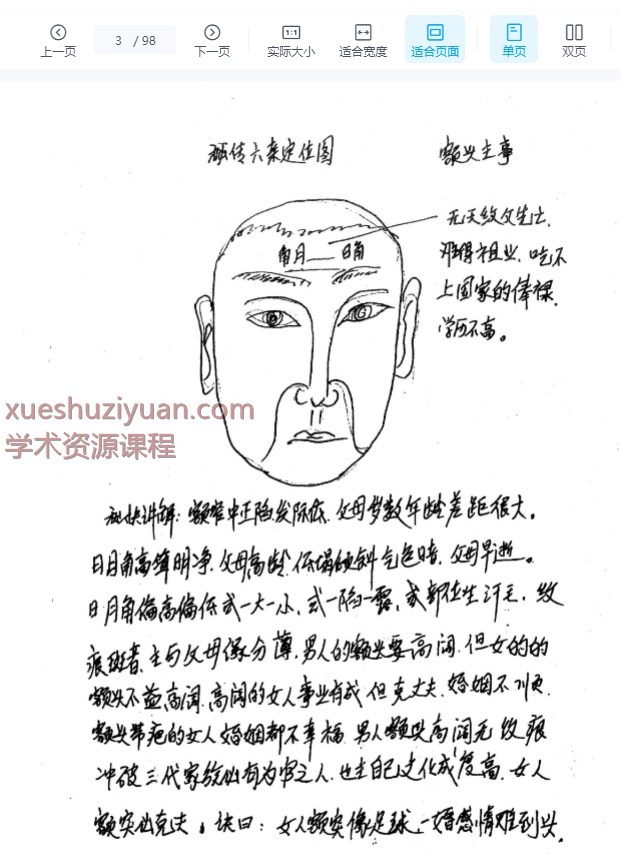 上一页
3 / 98
下一页
1:1
实际大小
适合宽度
适合页面
单页
双页
秘传六亲定位图
额头主事
无天纹父先亡,
难得祖业、吃不
上国家的俸禄,
学历不高。
角月
日角
xueshuziyuan.com
学术资源课程
秘诀讲解:额窄中正陷发际低、父母多数年龄差距很大。
日月角高耸明净、父母高龄、低塌倾斜气色暗、父母早逝。
日月角偏高偏低或一大一小、或一陷一露、或部位生汗毛、纹
痕斑者、主与父母缘分薄、男人的额头要高阔、但女的的
额头不益高阔、高阔的女人事业有成但克丈夫、婚姻不顺、
额头带疤的女人婚姻都不幸福、男人额头高阔无纹痕
冲破三代家族必有为官之人、也主自己文化成度高、女人
额突必克夫。诀曰:女人额突像足球、一婚感情难到头、